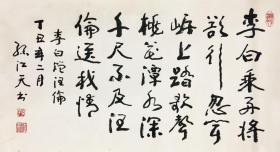 李白乘舟将
欲行忽聞
岸上踏歌聲
桃花潭水深
千尺不及汪
倫送我情
李白贈汪倫
丁丑年二月
孫江天书